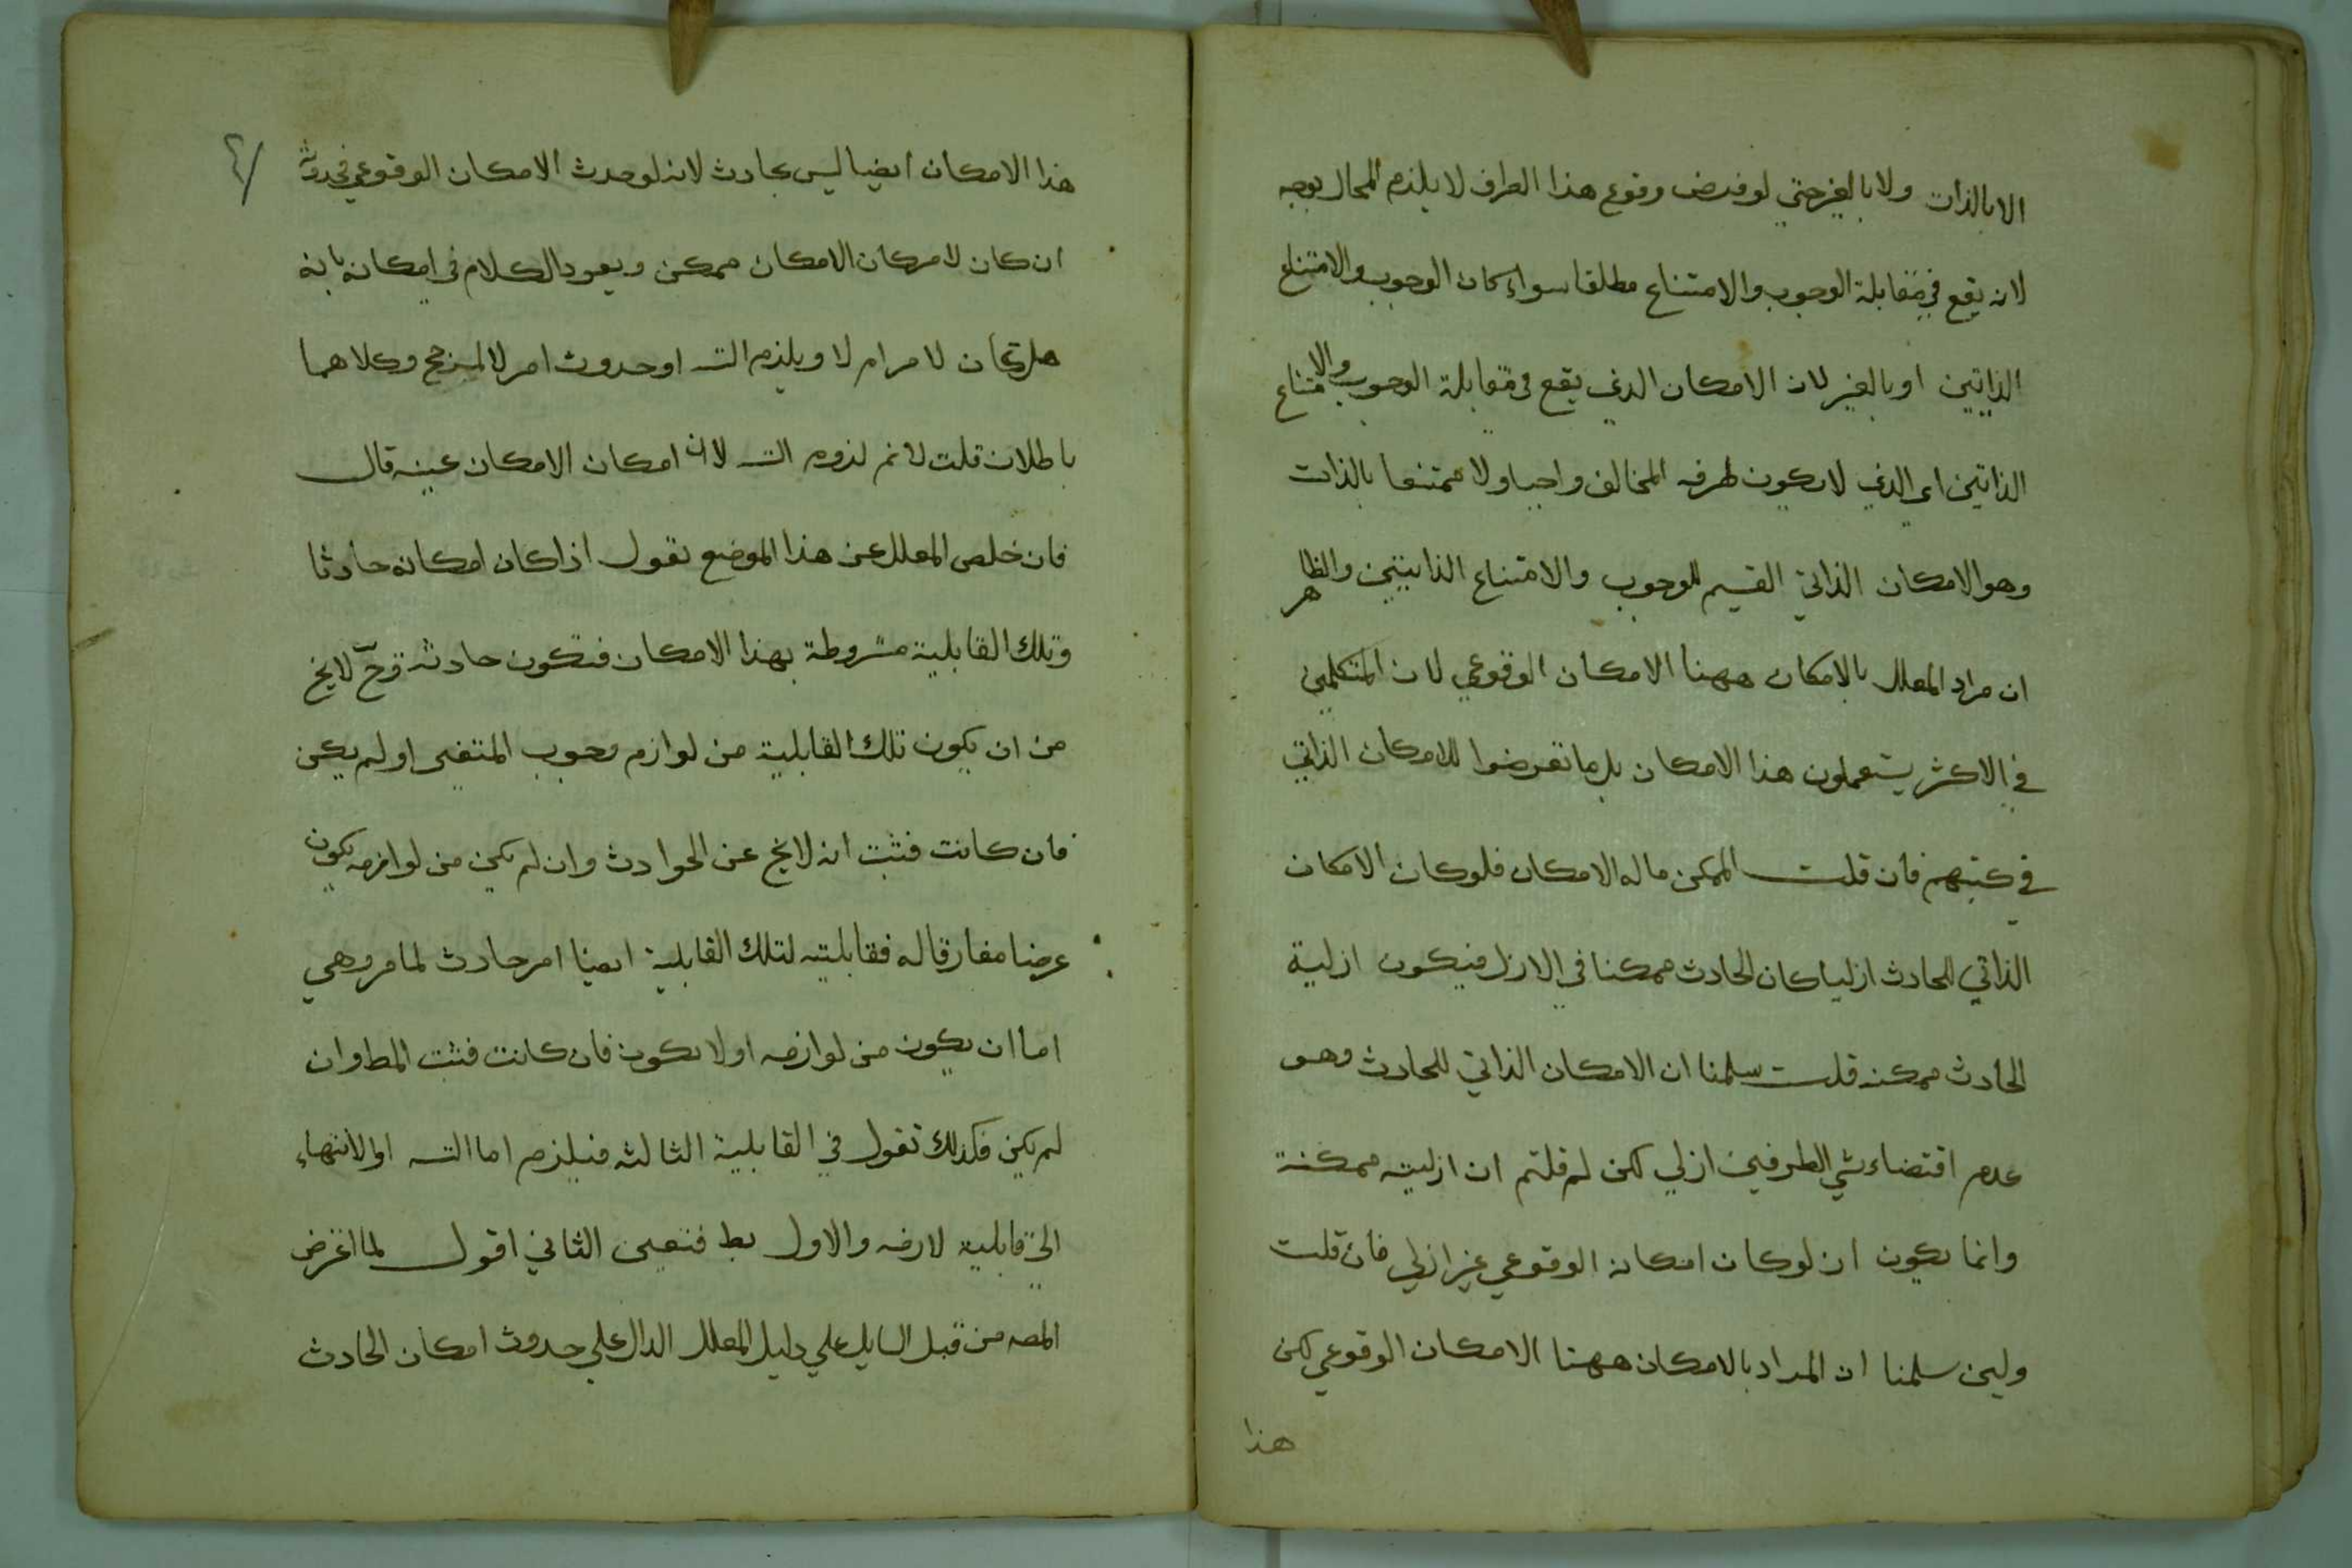 الا بالذات ولا بالغير حتي لو فرض وقوع هذا الطرف لا يلزم المحال بوجه
لانه يقع في مقابلة الوجوب والامتناع مطلقا سواء كان الوجوب والامتناع
الذاتيين او بالغير لان الامكان الذي يقع في مقابلة الوجوب والامتناع
الذاتيين اي الذي لا يكون طرفه المخالف واجبا ولا ممتنعا بالذات
وهو الامكان الذاتي القسيم للوجوب والامتناع الذاتيين والظاهر
ان مراد المعلل بالامكان ههنا الامكان الوقوعي لان المتكلمين
في الاكثر يستعملون هذا الامكان بل ما تعرضوا للامكان الذاتي
في كتبهم فان قلت الممكن ما له الامكان فلو كان الامكان
الذاتي للحادث ازليا كان الحادث ممكنا في الازل فيكون ازلية
الحادث ممكنه قلت سلمنا ان الامكان الذاتي للحادث وهو
عدم اقتضاء شي الطرفين ازلي لكن لم قلتم ان ازليته ممكنة
وانما يكون ان لو كان امكانه الوقوعي غير ازلي فان قلت
ولين سلمنا ان المراد بالامكان ههنا الامكان الوقوعي لكن
هذا
هذا الامكان ايضا ليس بحادث لانه لو حدث الامكان الوقوعي
ان كان لامكان الامكان ممكن ويعود الكلام في امكانه بانه
هل كان لامر ام لا ويلزم التسـ او حدوث امر لا لمرجح وكلاهما
باطلان قلت لا نم لزوم التسـ لان امكان الامكان عينه قال
فان خلص المعلل عن هذا الموضع نقول اذا كان امكانه حادثا
وتلك القابلية مشروطة بهذا الامكان فتكون حادثة وح لا يخ
من ان يكون تلك القابلية من لوازم وجوب او لم يكن
فان كانت فثبت انه لا يخ عن الحوادث وان لم يكن من لوازمه يكون
عرضا مفارقا له فقابليته لتلك القابلية ايضا امر حادث لما مر وهي
اما ان يكون من لوازمه او لا يكون فان كانت فثبت المط وان
لم يكن فكذلك نقول في القابلية الثالثه فيلزم اما التسـ او الانتهاء
الي قابلية لازمه والاول بط فتعين الثاني اقول لما اعترض
المصـ من قبل السايل علي دليل المعلل الدال علي حدوث امكان الحادث